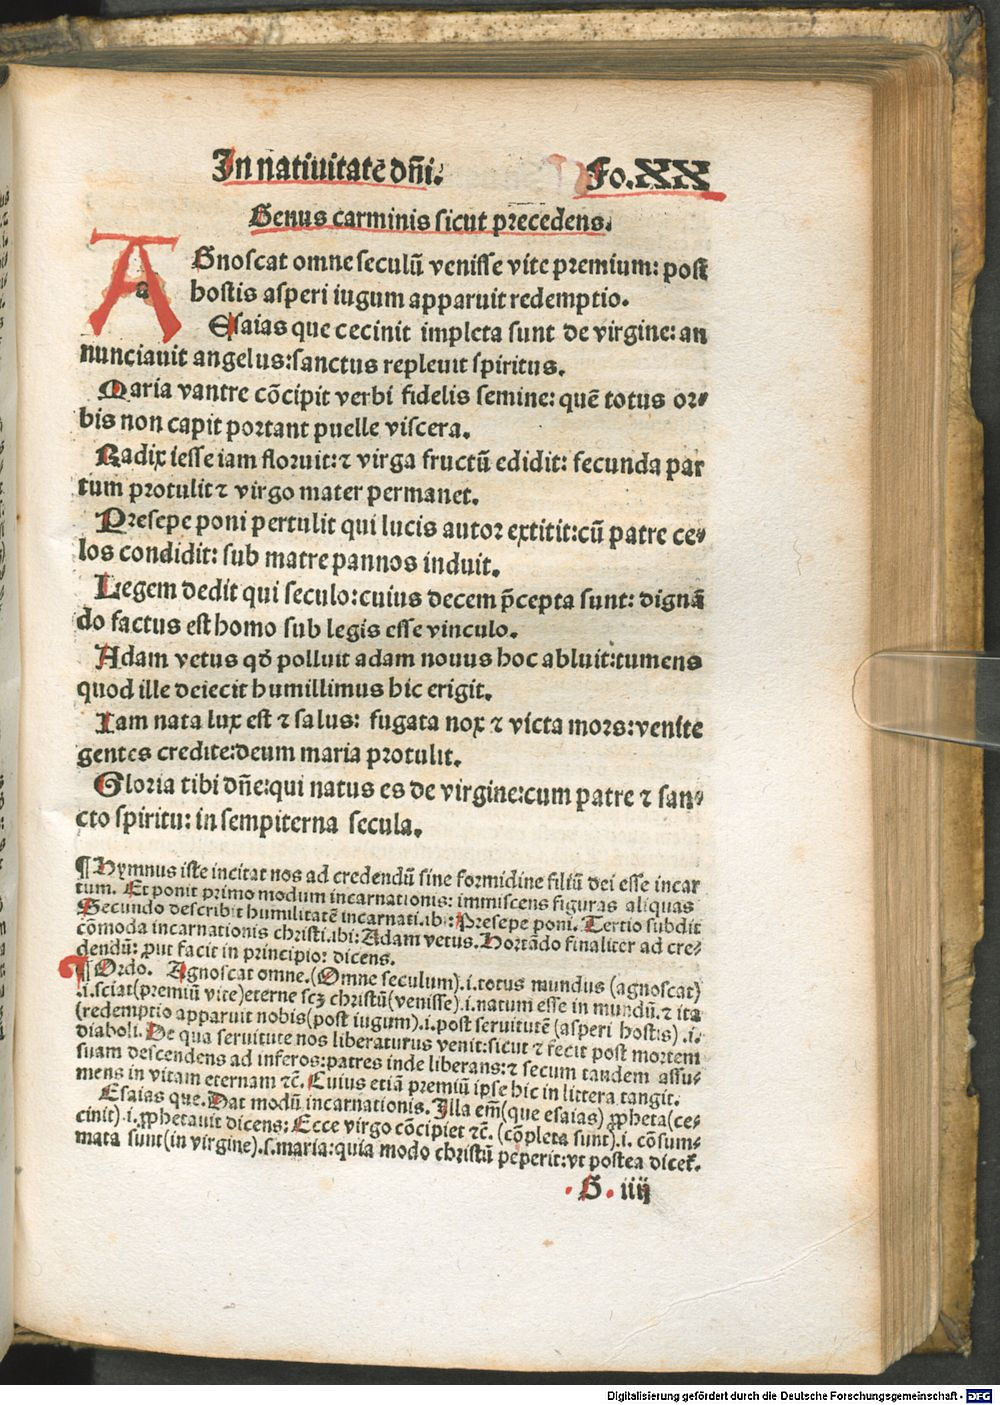 In natiuitatē dn̄i. Fo.XX
Genus carminis sicut precedens.
A Gnoscat omne seculū venisse vite premium: post
hostis asperi iugum apparuit redemptio.
Esaias que cecinit impleta sunt de virgine: an
nunciauit angelus:sanctus repleuit spiritus.
Maria vantre cōcipit verbi fidelis semine: quē totus or⸗
bis non capit portant puelle viscera.
Radix iesse iam floruit:⁊ virga fructū edidit: fecunda par
tum protulit⁊ virgo mater permanet.
Presepe poni pertulit qui lucis autor extitit:cū patre ce⸗
los condidit: sub matre pannos induit.
Legem dedit qui seculo:cuius decem p̄cepta sunt: dignā
do factus est homo sub legis esse vinculo.
Adam vetus qđ polluit adam nouus hoc abluit:tumens
quod ille deiecit humillimus hic erigit.
Iam nata lux est ⁊ salus: fugata nox ⁊ victa mors:venite
gentes credite:deum maria protulit.
Gloria tibi dn̄e:qui natus es de virgine:cum patre ⁊ san⸗
cto spiritu: in sempiterna secula.
¶ Hymnus iste incitat nos ad credendū sine formidine filiū dei esse incar
tum. Et ponit primo modum incarnationis: immiscens figuras aliquas
Secundo describit humilitatē incarnati.ibi:Presepe poni. Tertio subdit
cōmoda incarnationis christi.ibi:Adam vetus. Hortādo finaliter ad cre⸗
dendū: ꝓut facit in principio: dicens.
¶ Ordo. Agnoscat omne.(Omne seculum).i.totus mundus (agnoscat)
.i.sciat(premiū vite)eterne scꝫ christū(venisse).i.natum esse in mundū.⁊ ita
(redemptio apparuit nobis(post iugum).i.post seruitutē (asperi hostis) .i.
diaboli. De qua seruitute nos liberaturus venit:sicut ⁊ fecit post mortem
suam descendens ad inferos:patres inde liberans:⁊ secum tandem assu⸗
mens in vitam eternam ⁊c̄. Cuius etiā premiū ipse hic in littera tangit.
Esaias que.Dat modū incarnationis. Illa em̄(que esaias) ꝓpheta(ce⸗
cinit).i.ꝓphetauit dicens: Ecce virgo cōcipiet ⁊c̄. (cōpleta sunt).i. cōsum⸗
mata sunt(in virgine).s.maria:quia modo christū peperit:vt postea dicet̄.
.G. iiij
Digitalisierung gefördert durch die Deutsche Forschungsgemeinschaft - DFG